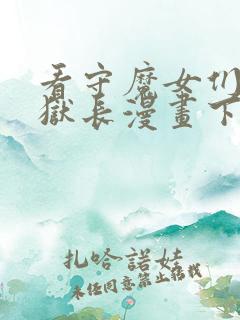 看守魔女们
獄長漫畫下
扎哈諾娃
未经同意禁止转载